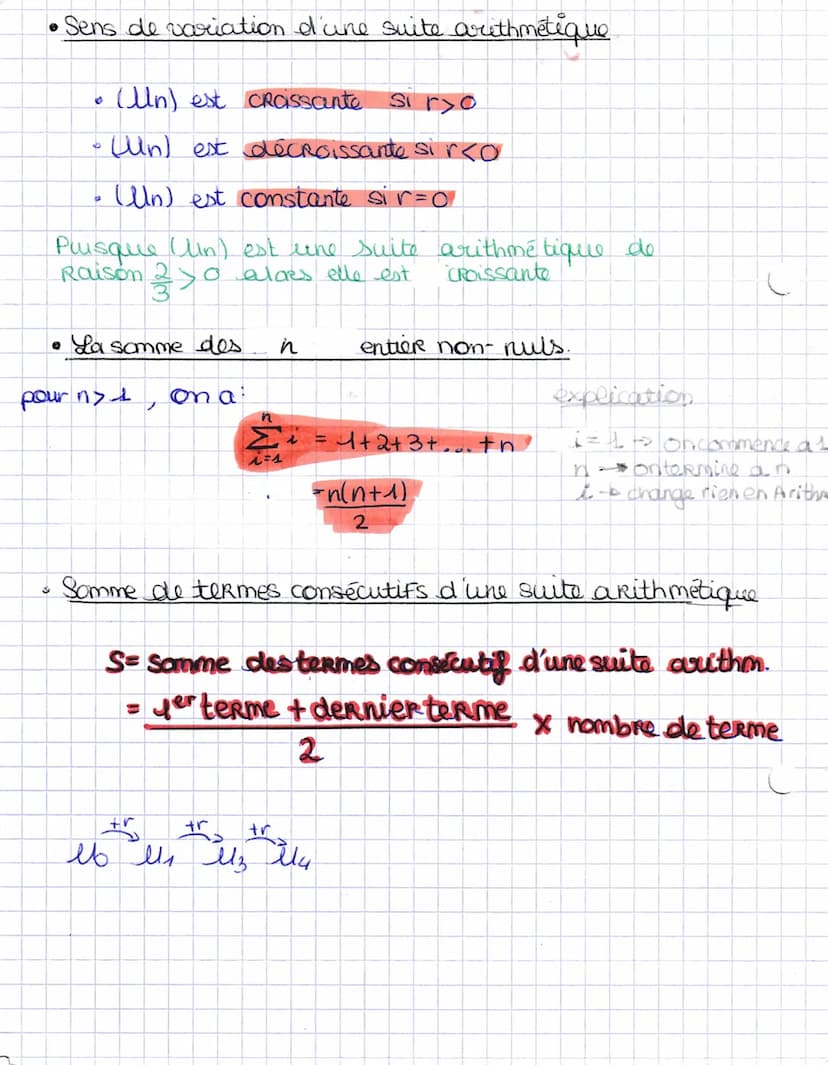 • Sens de variation d'une suite arithmétique
• (Un) est croissante si r>0
• (Un) est décroissante si r<0
• (Un) est constante si r=0
Puisque (Un) est une suite arithmétique de
Raison 2/3 >0 alors elle est croissante
• La somme des n entier non-nuls.
pour n>1, on a:
explication
n
∑ i = 1+2+3+...+n
i=1
i=1 → on commence a 1
n → on termine a n
i → change rien en Arithm
=n(n+1)
2
• Somme de termes consécutifs d'une suite arithmétique
S= somme des termes consécutif d'une suite arithm.
= 1er terme + dernier terme x nombre de terme
2
+r +r +r
U0 U1 U3 U4